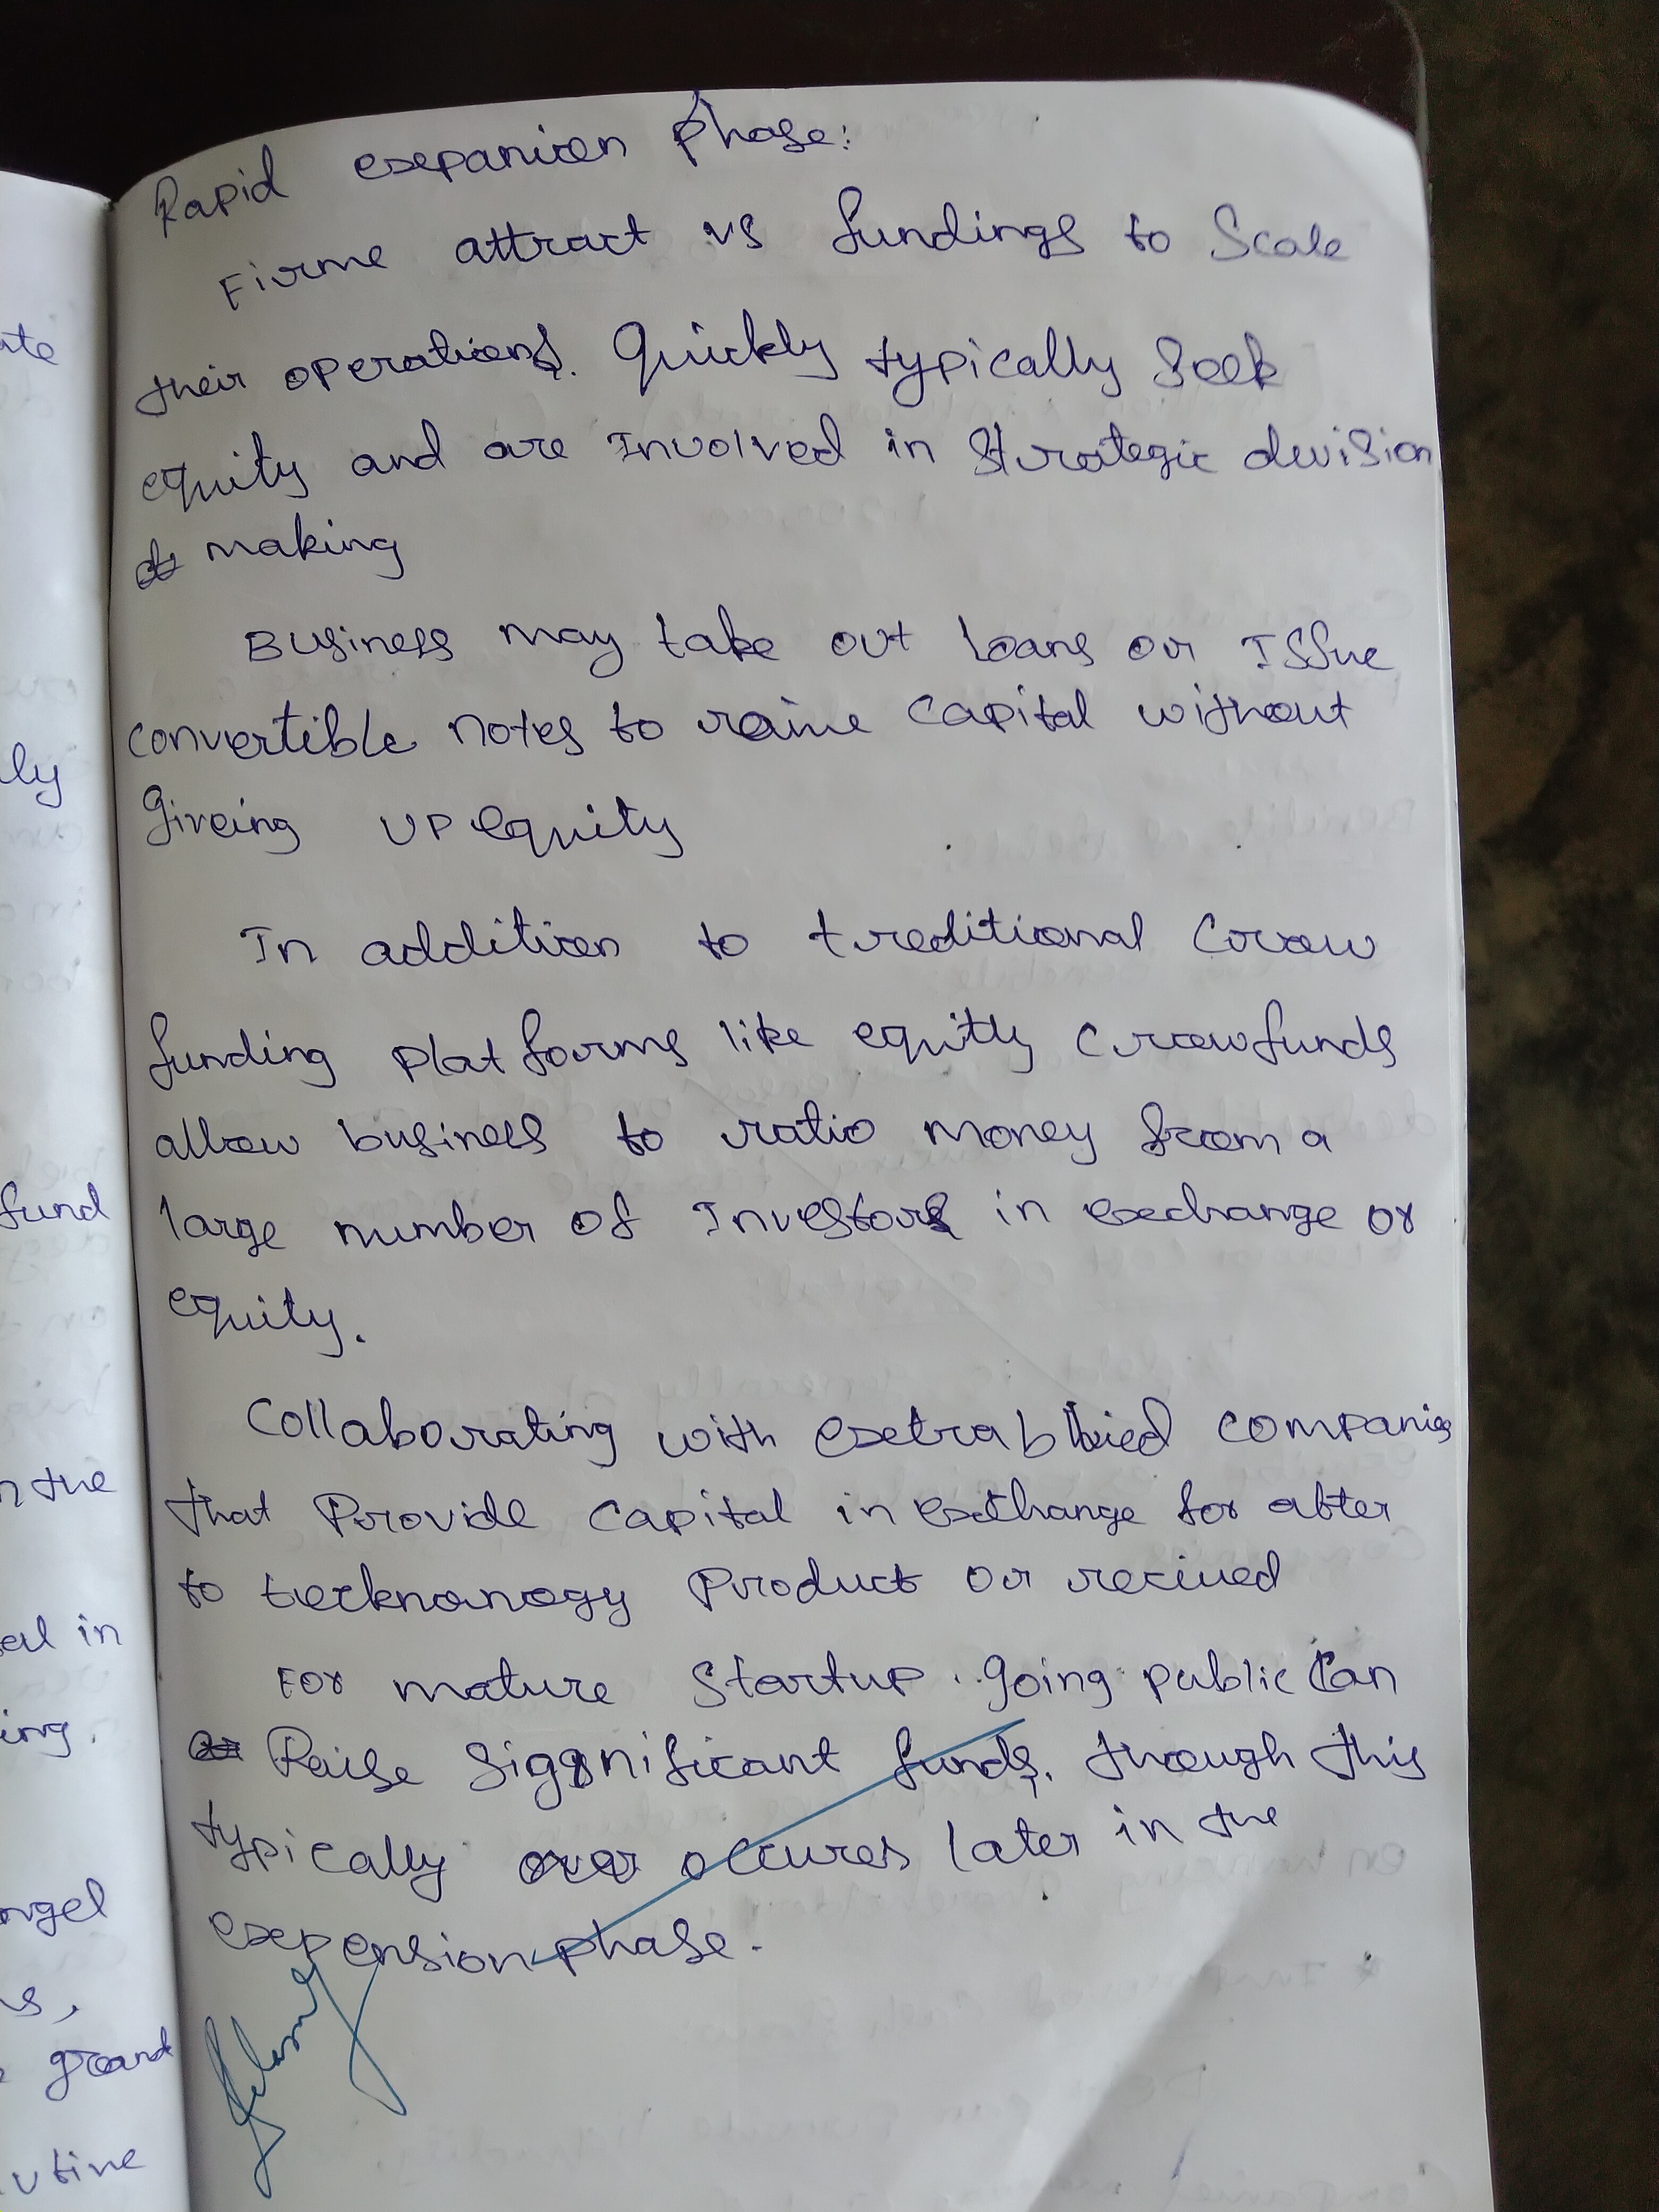 Rapid exepanion phase:
Firme attract vs fundings to Scale
their operations. Quickly typically Seek
equity and are Involved in Strategic devision
making
Business may take out loans or ISSue
convertible notes to raine capital without
Giveing UP equity
In addition to treditional Crow
funding platforms like equitly Crowfunds
allow business to ratio money from a
large number of Investors in exechange or
equity.
Collaborating with companies
that Provide Capital in exchange for after
to tecknonogy Product or recived
For mature Startup. going public Can
Raise significant funds. though this
typically occures later in the
exepension phase.
ate
ly
fund
n the
eal in
ing.
ngel
s,
grand
utine